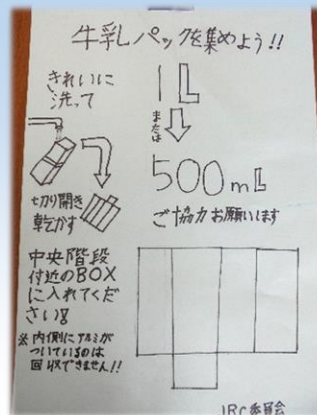 牛乳パックを集めよう!!
きれいに
洗って
切り開き
乾かす
1L
または
500mL
ご協力お願いします
中央階段
付近のBOX
に入れてくだ
さい!
※内側にアルミが
ついているのは
回収できません!!
JRC委員会